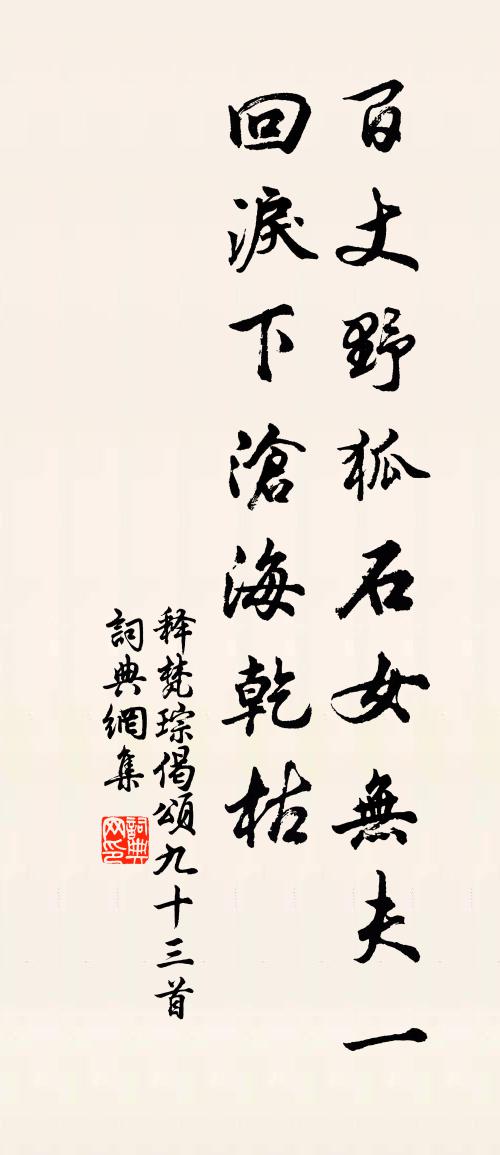 百丈野狐石女無夫一
回淚下滄海乾枯
释梵琮偈頌九十三首
詞典網集
詞典網印